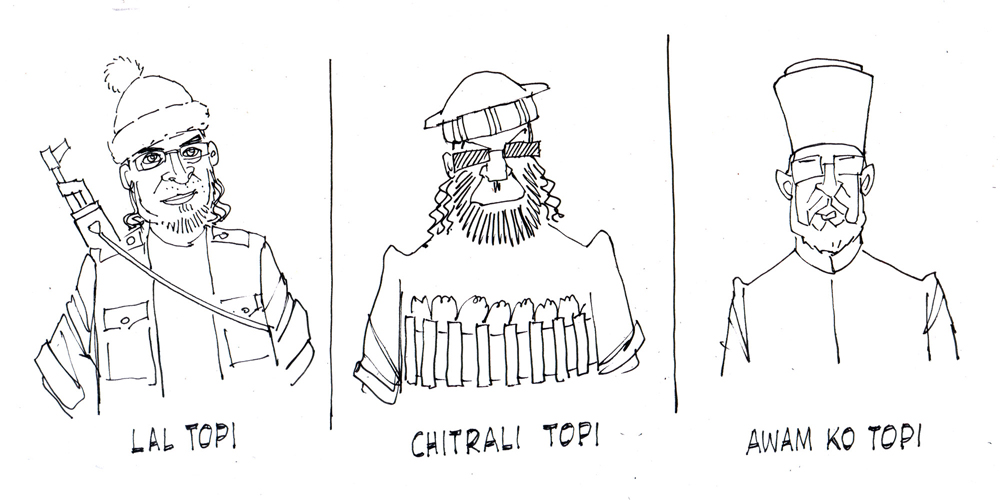 LAL TOPI
CHITRALI TOPI
AWAM KO TOPI